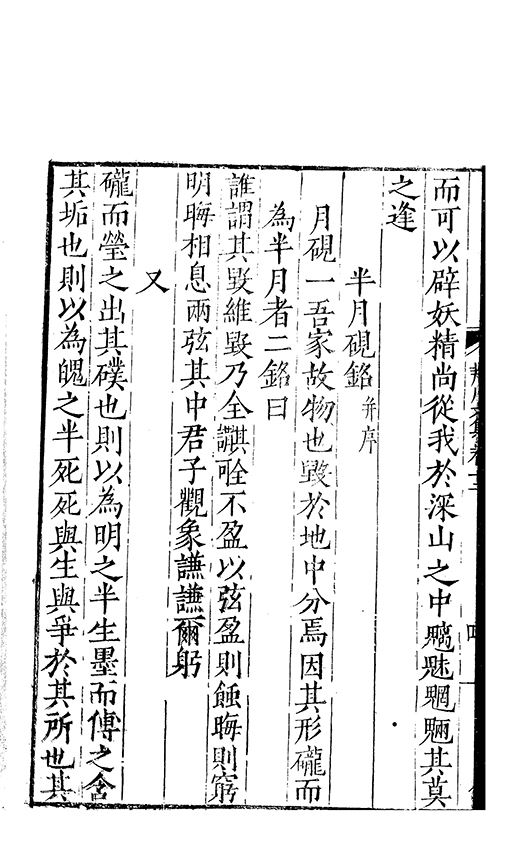 而可以辟妖精尚從我於深山之中魑魅魍魎其莫
之逢
半月硯銘并序
月硯一吾家故物也毀於地中分焉因其形礲而
為半月者二銘曰
誰謂其毀維毀乃全不盈以弦盈則蝕晦則窮
明晦相息兩弦其中君子觀象謙謙爾躬
又
礲而瑩之出其也則以為明之半生墨而傅之含
其垢也則以為魄之半死死與生與爭於其所也其